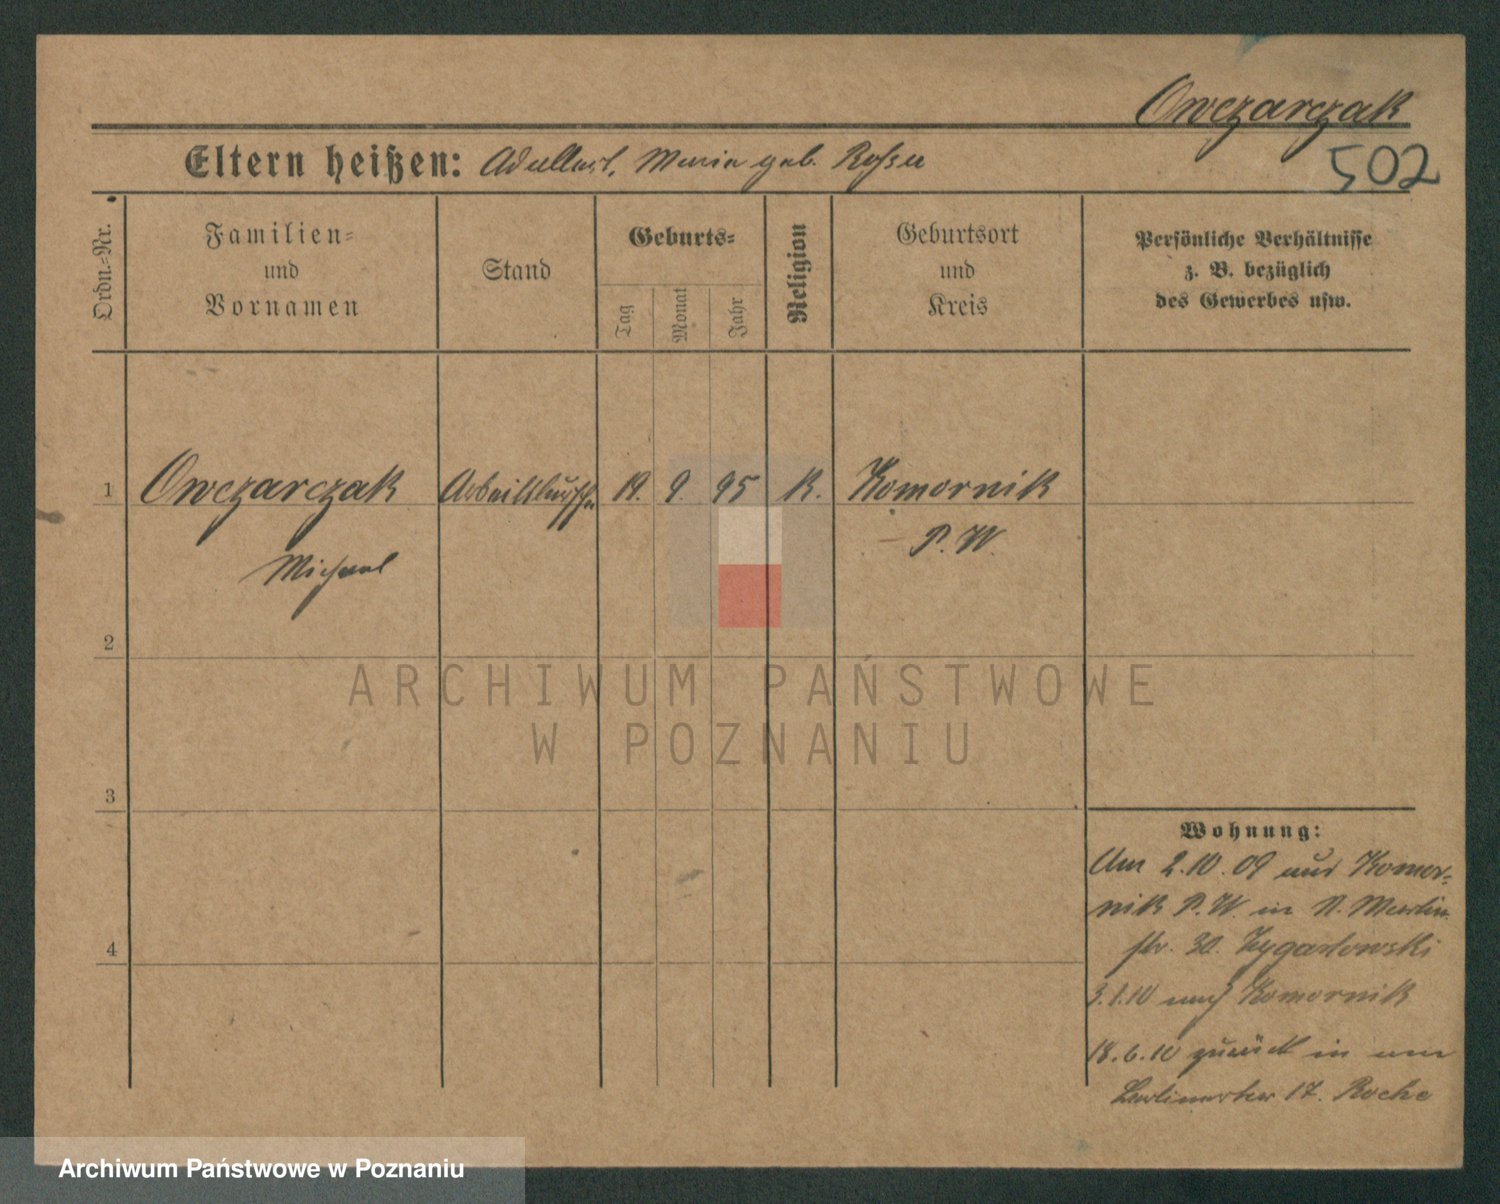 Owczarczak
502
Eltern heißen: Maria geb.
Ordn.=Nr.
Familien=
und
Vornamen
Stand
Geburts=
Tag
Monat
Jahr
Religion
Geburtsort
und
Kreis
Persönliche Verhältnisse
z. B. bezüglich
des Gewerbes usw.
1 Owczarczak Arbeitsbursche 19. 9. 95 K. Komornik
P. W.
Michael
2
ARCHIWUM PAŃSTWOWE
W POZNANIU
3
Wohnung:
Am 2.10.09 aus Komor=
nik P. W. in St. Martin
str. 30.
4
3.1.10 nach Komornik
18.6.10 zurück in
17.
Archiwum Państwowe w Poznaniu